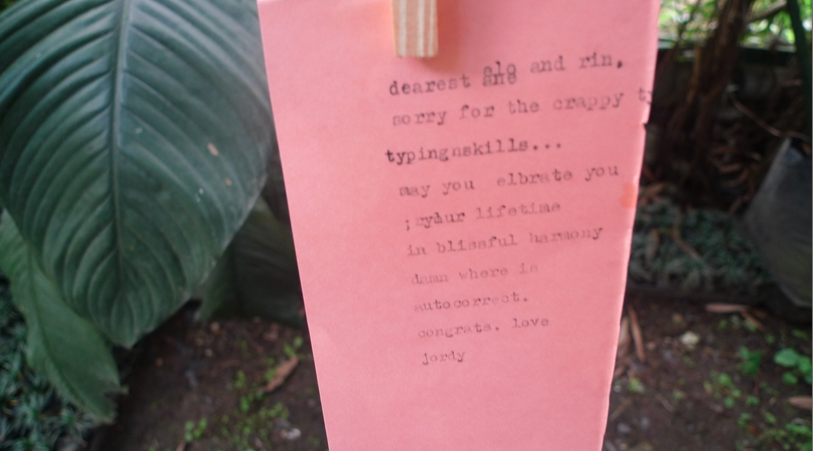 dearest and rin,
sorry for the crappy ty
typingnskills...
may you elbrate you
lifetime
in blissful harmony
damn where is
autocorrect.
congrats. love
jordy